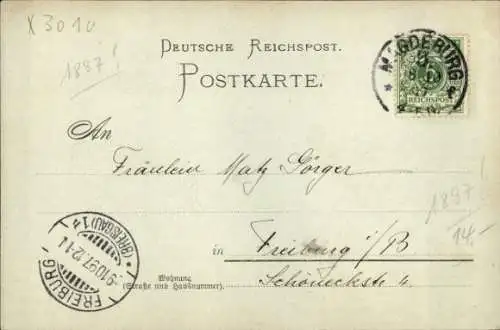 X 3010
1897!
DEUTSCHE REICHSPOST.
POSTKARTE.
MAGDEBURG
REICHSPOST
An
Fräulein Matz Görger
1897!
14,-
in Freiburg i/B
Wohnung
(Straße und Hausnummer).
Schöneckstr. 4.
FREIBURG
(BREISGAU) 1
9.10.97. 12-1